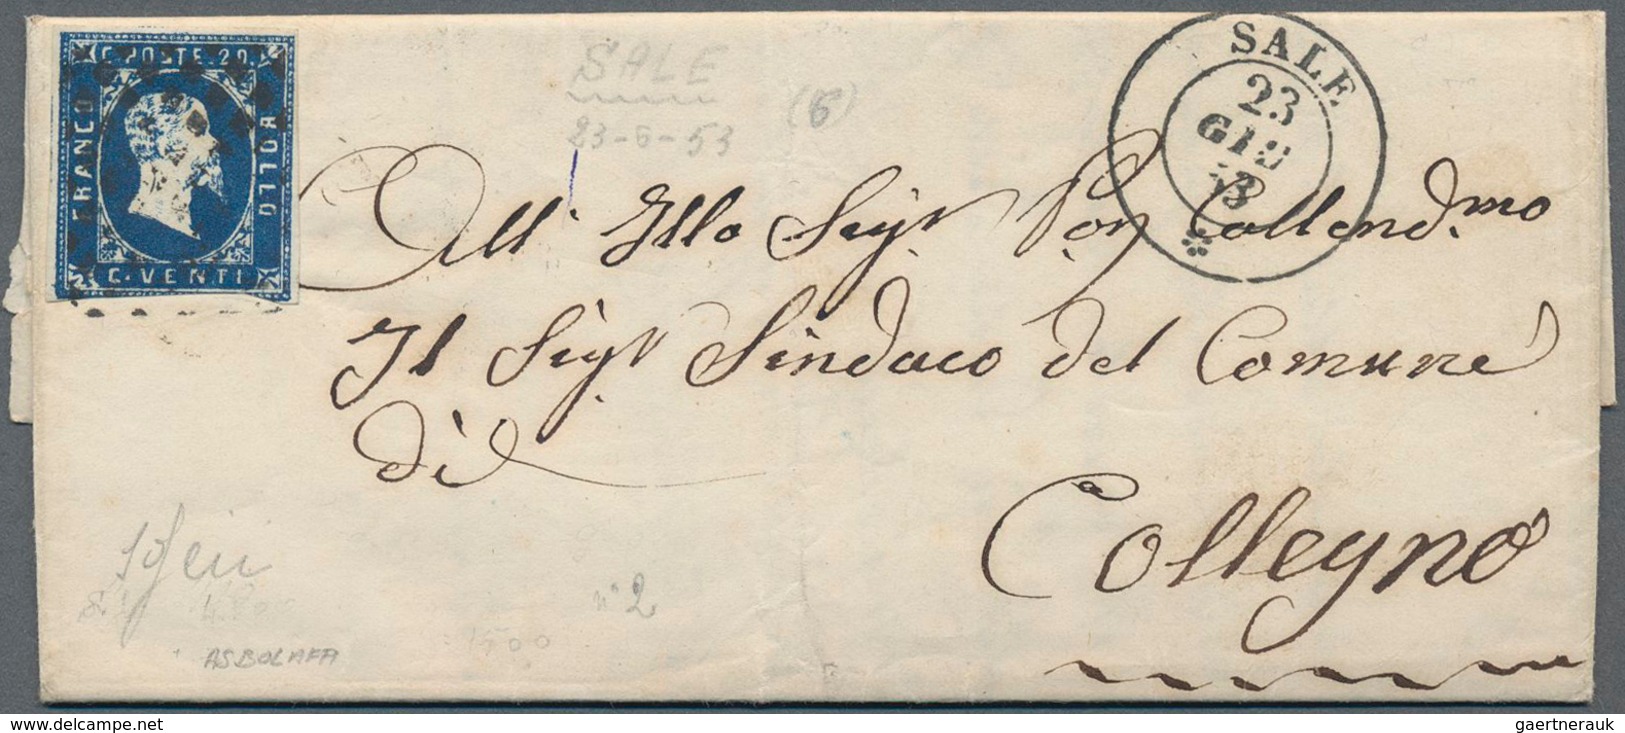 C. POSTE. 20.
FRANCO
BOLLO
C. VENTI
SALE
23-6-53
(6)
SALE
23
GIU
53
All' Illo Sigr Pon Collendmo
Il Sigr Sindaco del Comune
di
Collegno
n° 2
1500
ASBOLAFA
www.delcampe.net
gaertnerauk